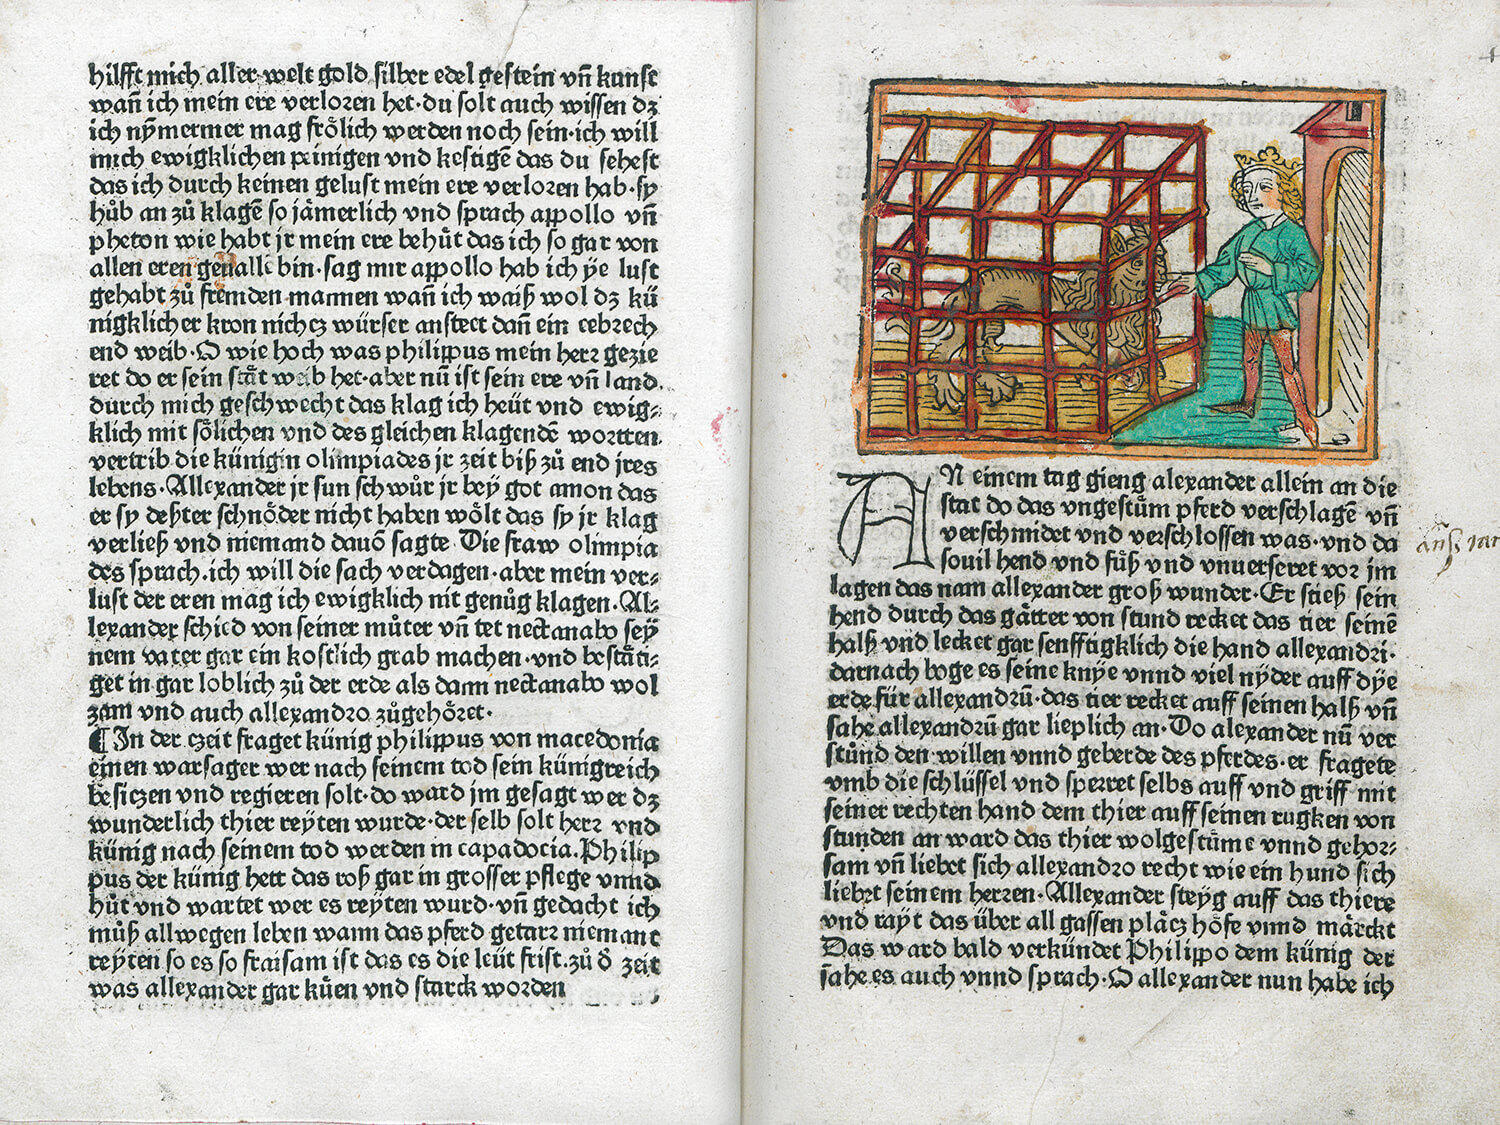 hilfft mich aller welt gold silber edel gestein vñ kunst
wañ ich mein ere verloren het·du solt auch wissen dz
ich nÿmermer mag frölich werden noch sein·ich will
mich ewigklichen peinigen vnd kestigẽ das du sehest
das ich durch keinen gelust mein ere verloren hab·sy
hůb an zů klagẽ so jämerlich vnd sprach appollo vñ
pheton wie habt jr mein ere behüt das ich so gar von
allen eren geuallē bin·sag mir appollo hab ich ÿe lust
gehabt zů fremden mannen wañ ich waiß wol dz kü
nigklicher kron nichcz würser anstect dañ ein eebrech
end weib·O wie hoch was philippus mein herr gezie
ret do er sein stät weib het·aber nũ ist sein ere vñ land.
durch mich geschwecht das klag ich heüt vnd ewig⸗
klich mit sölichen vnd des gleichen klagendẽ wortten.
vertrib die künigin olimpiades jr zeit biß zů end jres
lebens·Allexander jr sun schwůr jr beÿ got amon das
er sy deßter schnöder nicht haben wölt das sy jr klag
verließ vnd niemand dauõ sagte Die fraw olimpia
des sprach.ich will die sach verdagen·aber mein ver⸗
lust der eren mag ich ewigklich nit genůg klagen·Al⸗
lexander schied von seiner můter vñ tet nectanabo seÿ
nem vater gar ein kostlich grab machen·vnd bestäti⸗
get in gar loblich zů der erde als dann nectanabo wol
zam vnd auch allexandro zůgehöret·
¶ In der czeit fraget künig philippus von macedonia
einen warsager wer nach seinem tod sein künigreich
besiczen vnd regieren solt·do ward jm gesagt wer dz
wunderlich thier reÿten wurde·der selb solt herr vnd
künig nach seinem tod werden in capadocia.Philip
pus der künig hett das roß gar in grosser pflege vnnd
hůt vnd wartet wer es reÿten wurd·vñ gedacht ich
můß allwegen leben wann das pferd getarr niemant
reÿten so es so fraisam ist das es die leüt frist·zů d̃ zeit
was allexander gar küen vnd starck worden
AN einem tag gieng alexander allein an die
stat do das vngestüm pferd verschlagẽ vñ
verschmidet vnd verschlossen was·vnd da
souil hend vnd füß vnd vnuerseret vor jm
lagen das nam allexander groß wunder·Er stieß sein
hend durch das gätter von stund recket das tier seinẽ
halß vnd lecket gar senfftigklich die hand allexandri·
darnach boge es seine knÿe vnnd viel nÿder auff dÿe
erde für allexandrũ·das tier recket auff seinen halß vñ
sahe allexandrũ gar lieplich an·Do alexander nũ ver
stůnd den willen vnnd geberde des pferdes·er fragete
vmb die schlüssel vnd sperret selbs auff vnd griff mit
seiner rechten hand dem thier auff seinen rugken von
stunden an ward das thier wolgestüme vnnd gehor⸗
sam vñ liebet sich allexandro recht wie ein hund sich
liebet seinem herzen·Allexander steÿg auff das thiere
vnd rayt das über all gassen pläcz höfe vnnd märckt
Das ward bald verkündet Philippo dem künig der
sahe es auch vnnd sprach·O allexander nun habe ich